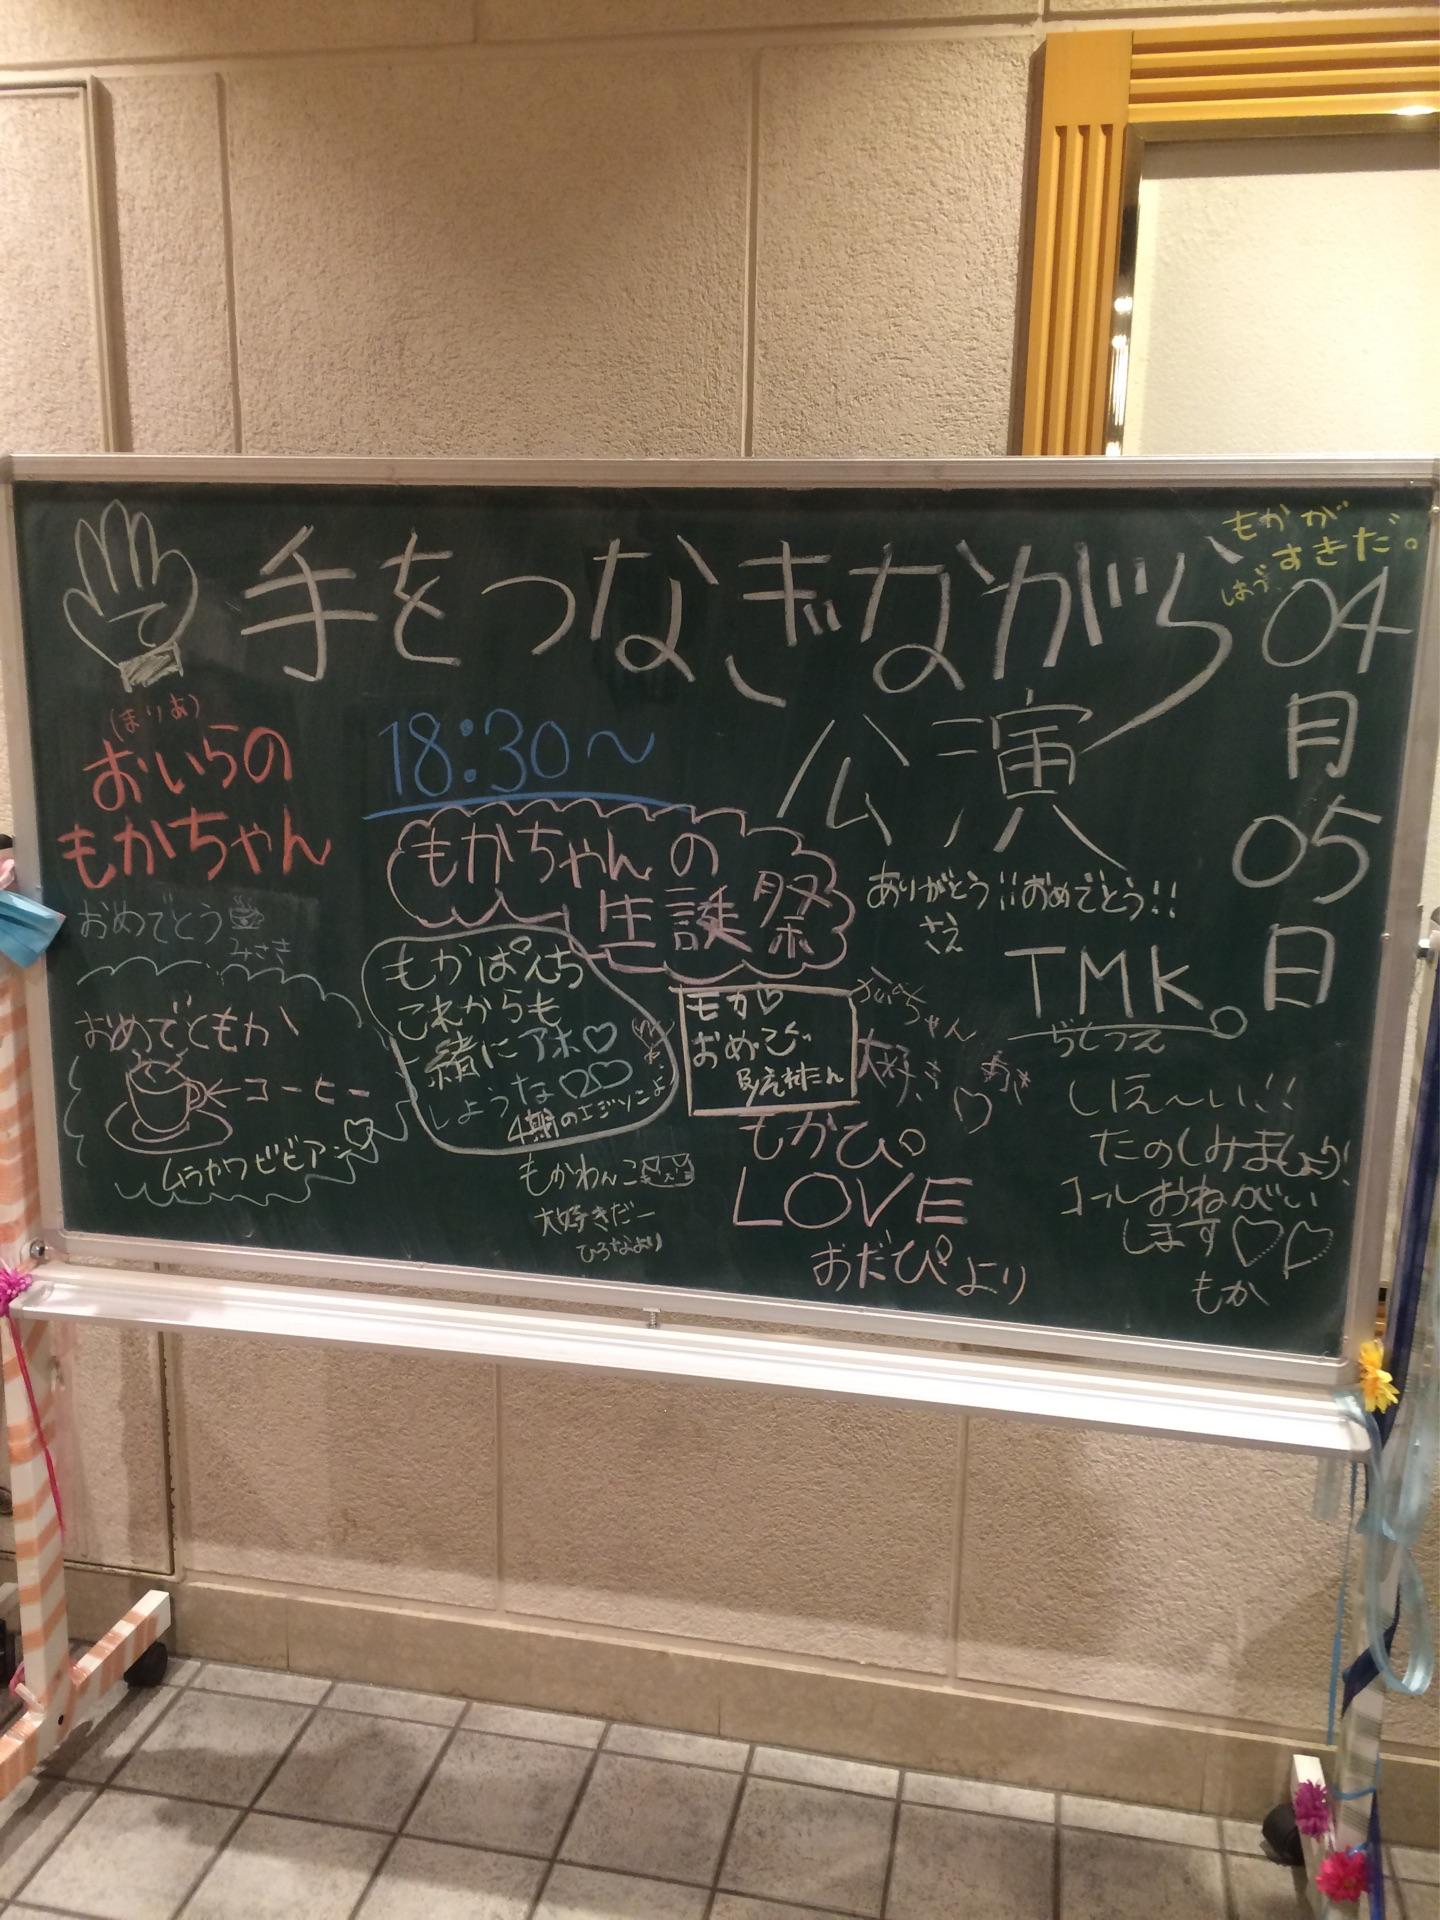 手をつなぎながら
公演
04
月
05
日
もかが
すきだ。
(まりあ)
おいらの
もかちゃん
18:30〜
もかちゃんの
生誕祭
おめでとう
みさき
おめでともか
コーヒー
ムラカワビビアン
もかぱんち
これからも
緒にアホ♡
しような♡♡
もか♡
おめび
ありがとう!!おめでとう!!
さえ
TMK。
ちゃん
大好き
あき
♡
もかぴ
LOVE
おだぴより
もかわんこ
大好きだー
ひろなより
しほ〜い!!
たのしみましょう!
コールおねがい
します♡♡
もか